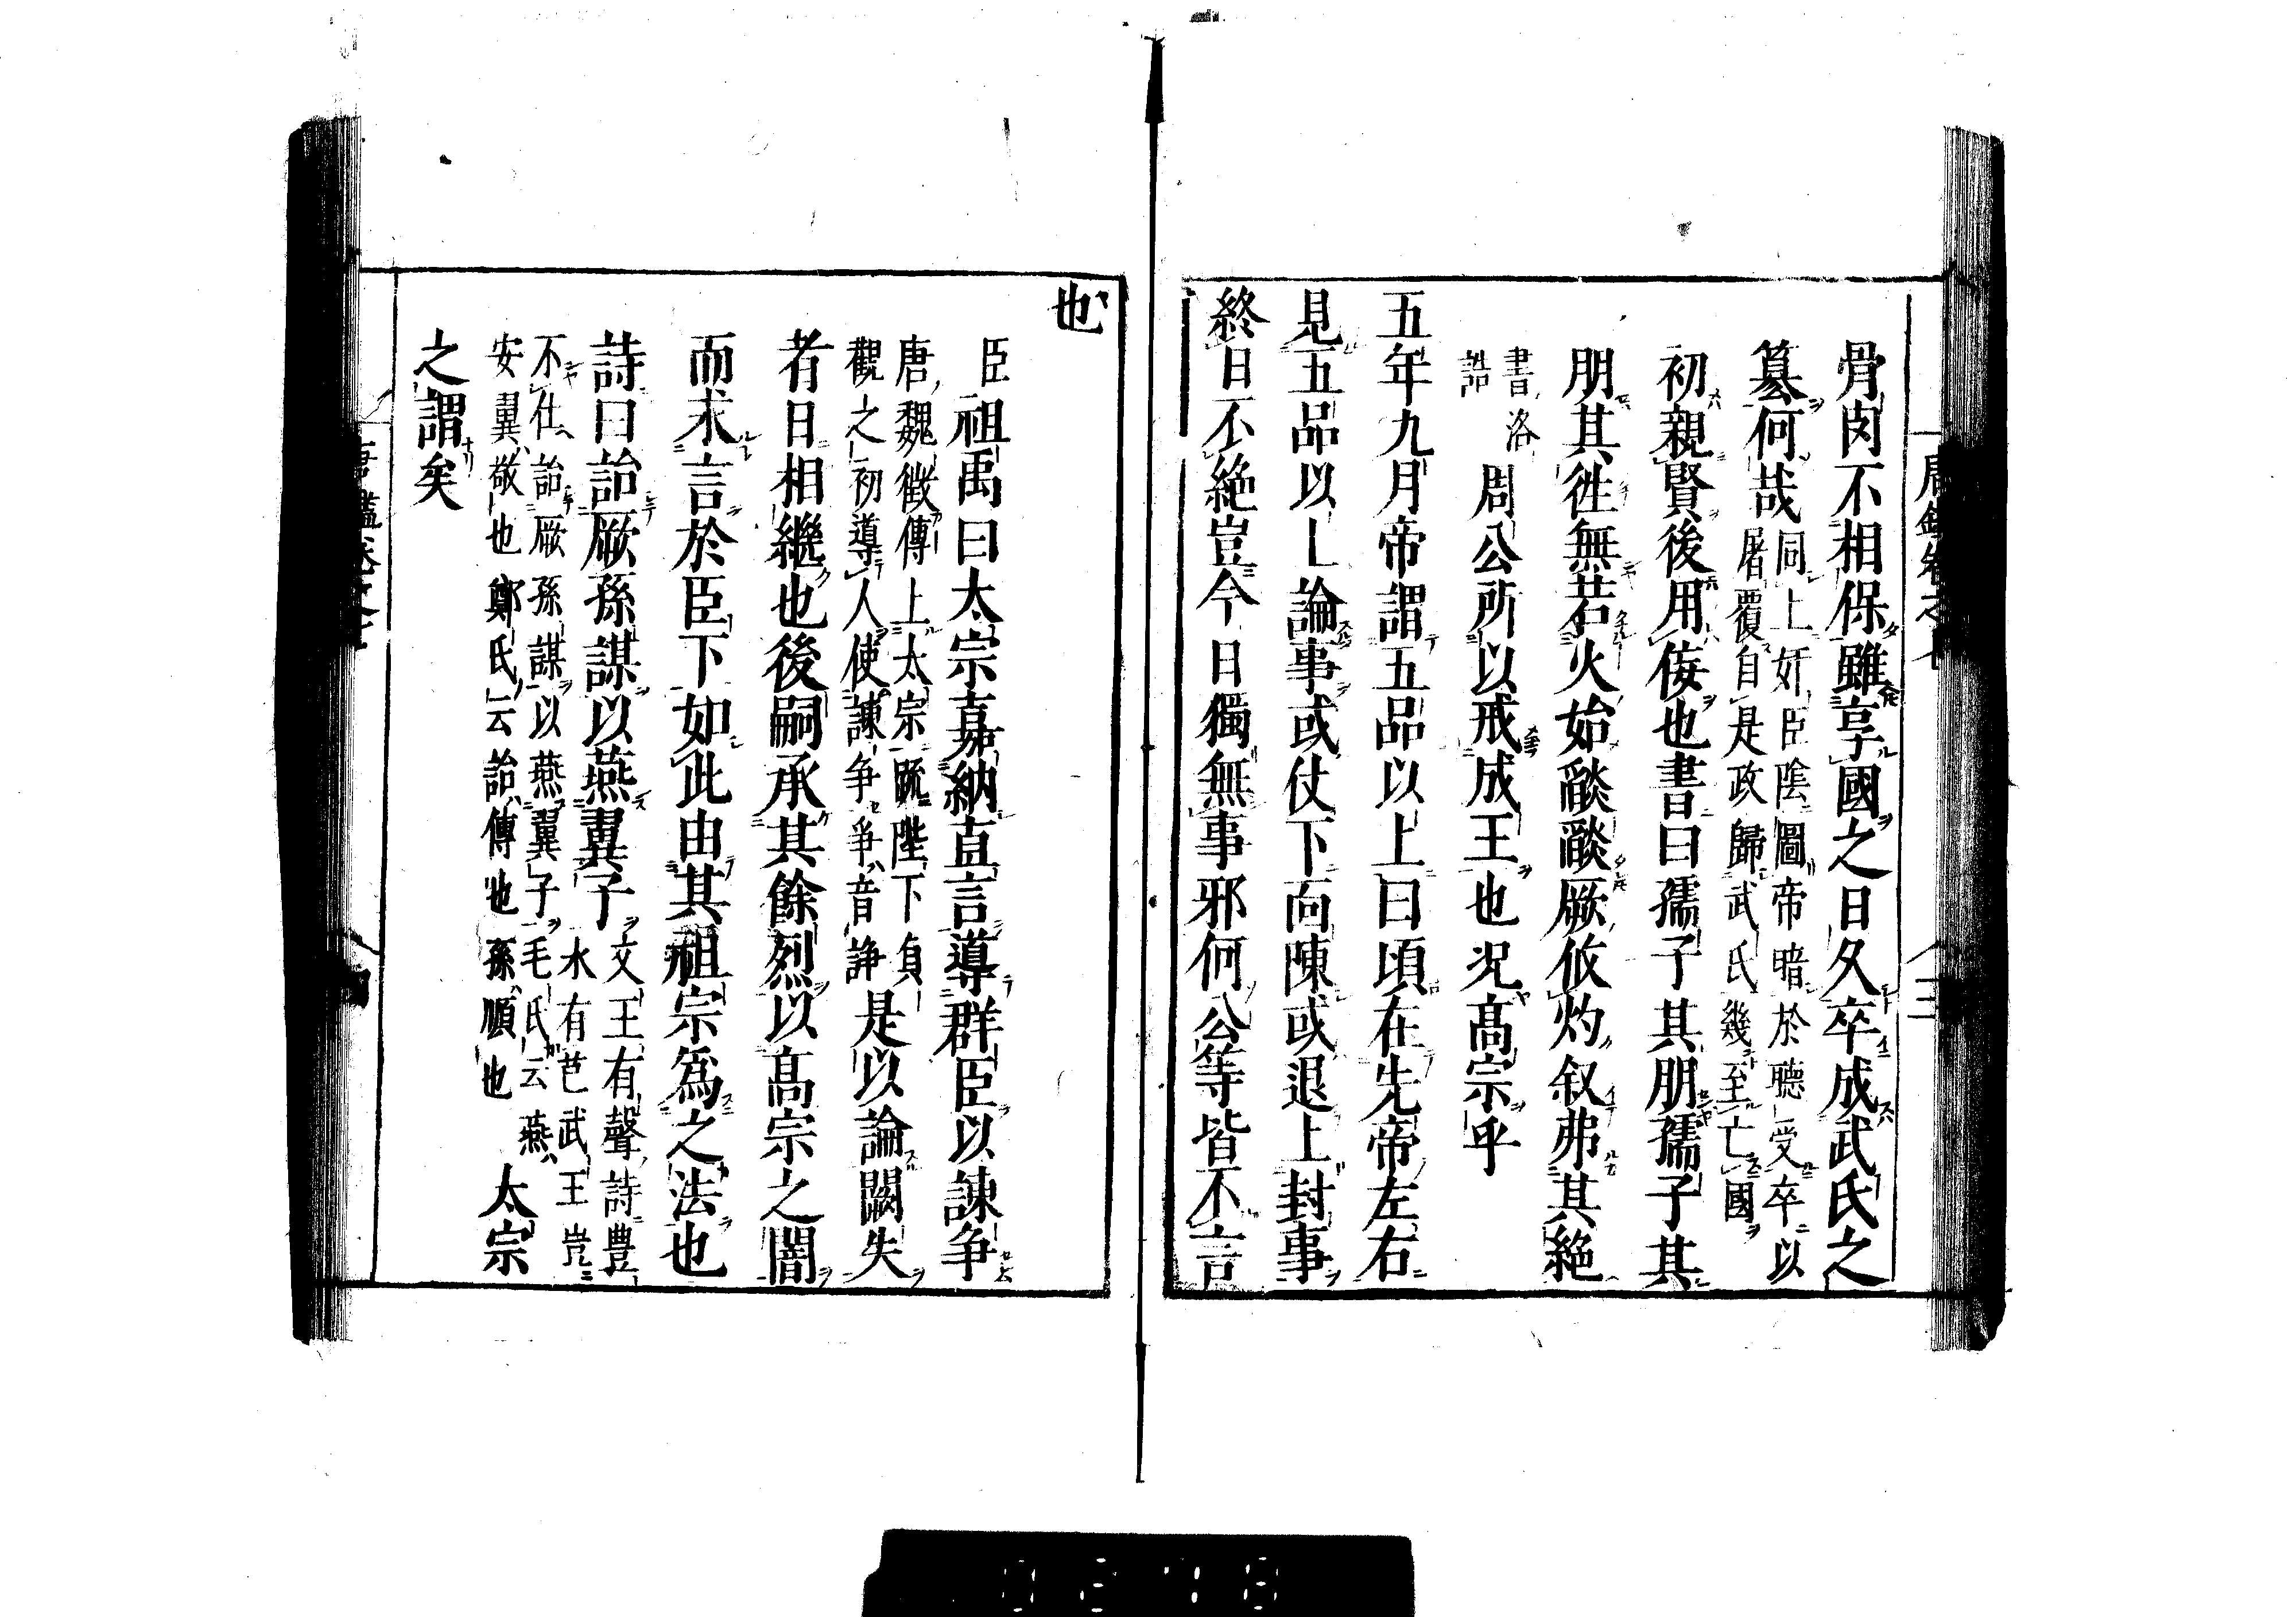 骨肉不相保雖享國之日久卒成武氏之
簒何哉同上奸臣陰圖帝暗於聽受卒以
屠覆自是政歸武氏幾至亡國
初親賢後用佞也書曰孺子其朋孺子其
朋其徃無若火始燄燄厥攸灼叙弗其絕
書洛
誥周公所以戒成王也况髙宗乎
五年九月帝謂五品以上曰頃在先帝左右
見五品以上論事或仗下面陳或退上封事
終日不絕豈今日獨無事邪何公等皆不言
也
臣祖禹曰太宗嘉納直言導群臣以諫争
唐魏徵傳上太宗䟽陛下貞
觀之初導人使諫争争音諍是以論闕失
者日相繼也後嗣承其餘烈以髙宗之闇
而求言於臣下如此由其祖宗為之法也
詩曰詒厥孫謀以燕翼子文王有聲詩豊
水有芑武王豈
不仕詒厥孫謀以燕翼子毛氏云燕
安翼敬也鄭氏云詒傳也孫順也太宗
之謂矣